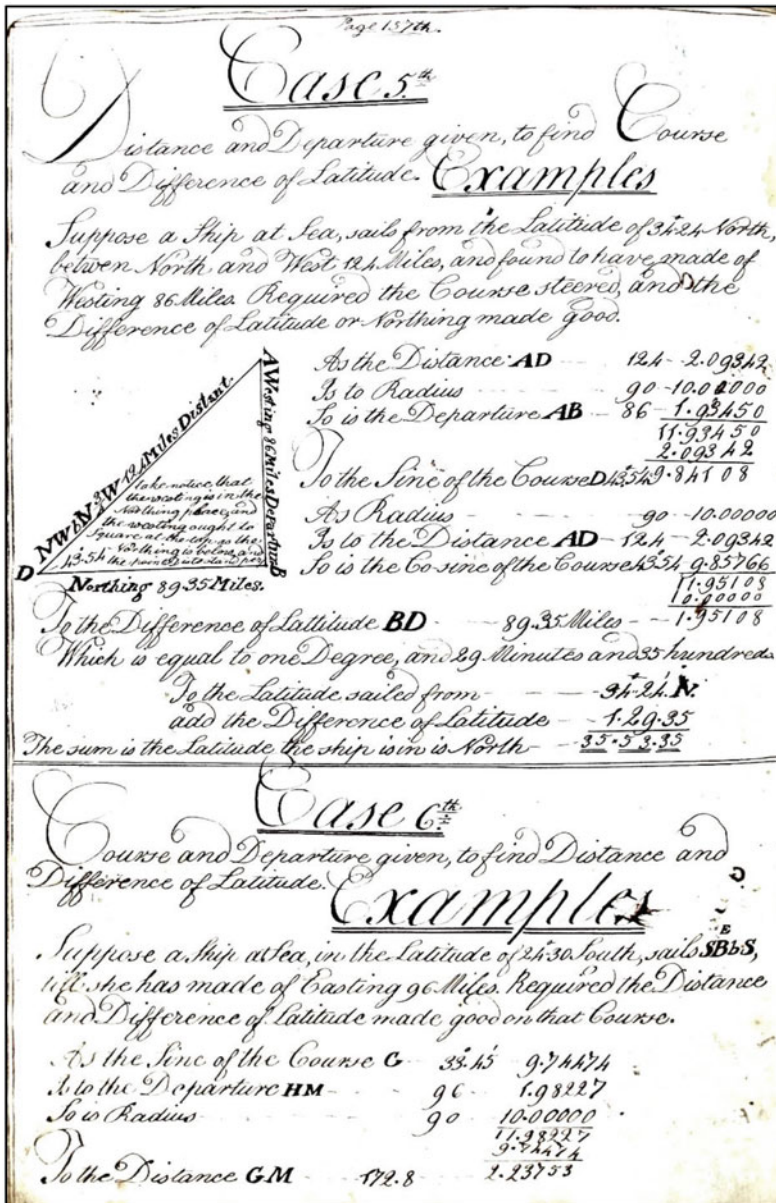 Page 157th.
Case 5th
Distance and Departure given, to find Course
and Difference of Latitude. Examples
Suppose a Ship at Sea, sails from the Latitude of 34°24 North,
betwen North and West 124 Miles, and found to have made of
Westing 86 Miles. Required the Course steered, and the
Difference of Latitude or Northing made good.
A
NWbN 3/4 W 124 Miles Distant.
Westing 86 Miles Departure
take notice, that
the westing is in the
Northing place, and
the westing ought to
Square at the top, as the
Northing is below, and
43°.54'
D
B
Northing 89.35 Miles.
As the Distance AD 124 - 2.09342
Is to Radius 90 - 10.00000
So is the Departure AB - 86 - 1.93450
11.93450
2.09342
To the Sine of the Course D 43°.54' 9.84108
As Radius 90 - 10.00000
Is to the Distance AD - 124 - 2.09342
So is the Co-sine of the Course 43°54 9.85766
11.95108
10.00000
To the Difference of Lattitude BD 89.35 Miles - 1.95108
Which is equal to one Degree, and 29 Minutes and 35 hundreds
To the Latitude sailed from - 34°-24'. N.
add the Difference of Latitude - 1.29.35
The sum is the Latitude the ship is in is North - 35.53.35
Case 6th
Course and Departure given, to find Distance and
Difference of Latitude.
Examples
E
Suppose a Ship at Sea, in the Latitude of 24°30 South, sails SBbS,
till she has made of Easting 96 Miles. Required the Distance
and Difference of Latitude made good on that Course.
As the Sine of the Course G - 33°.45' 9.74474
Is to the Departure HM - 96 1.98227
So is Radius - 90 10.00000
11.98227
9.74474
To the Distance GM - 172.8 2.23753